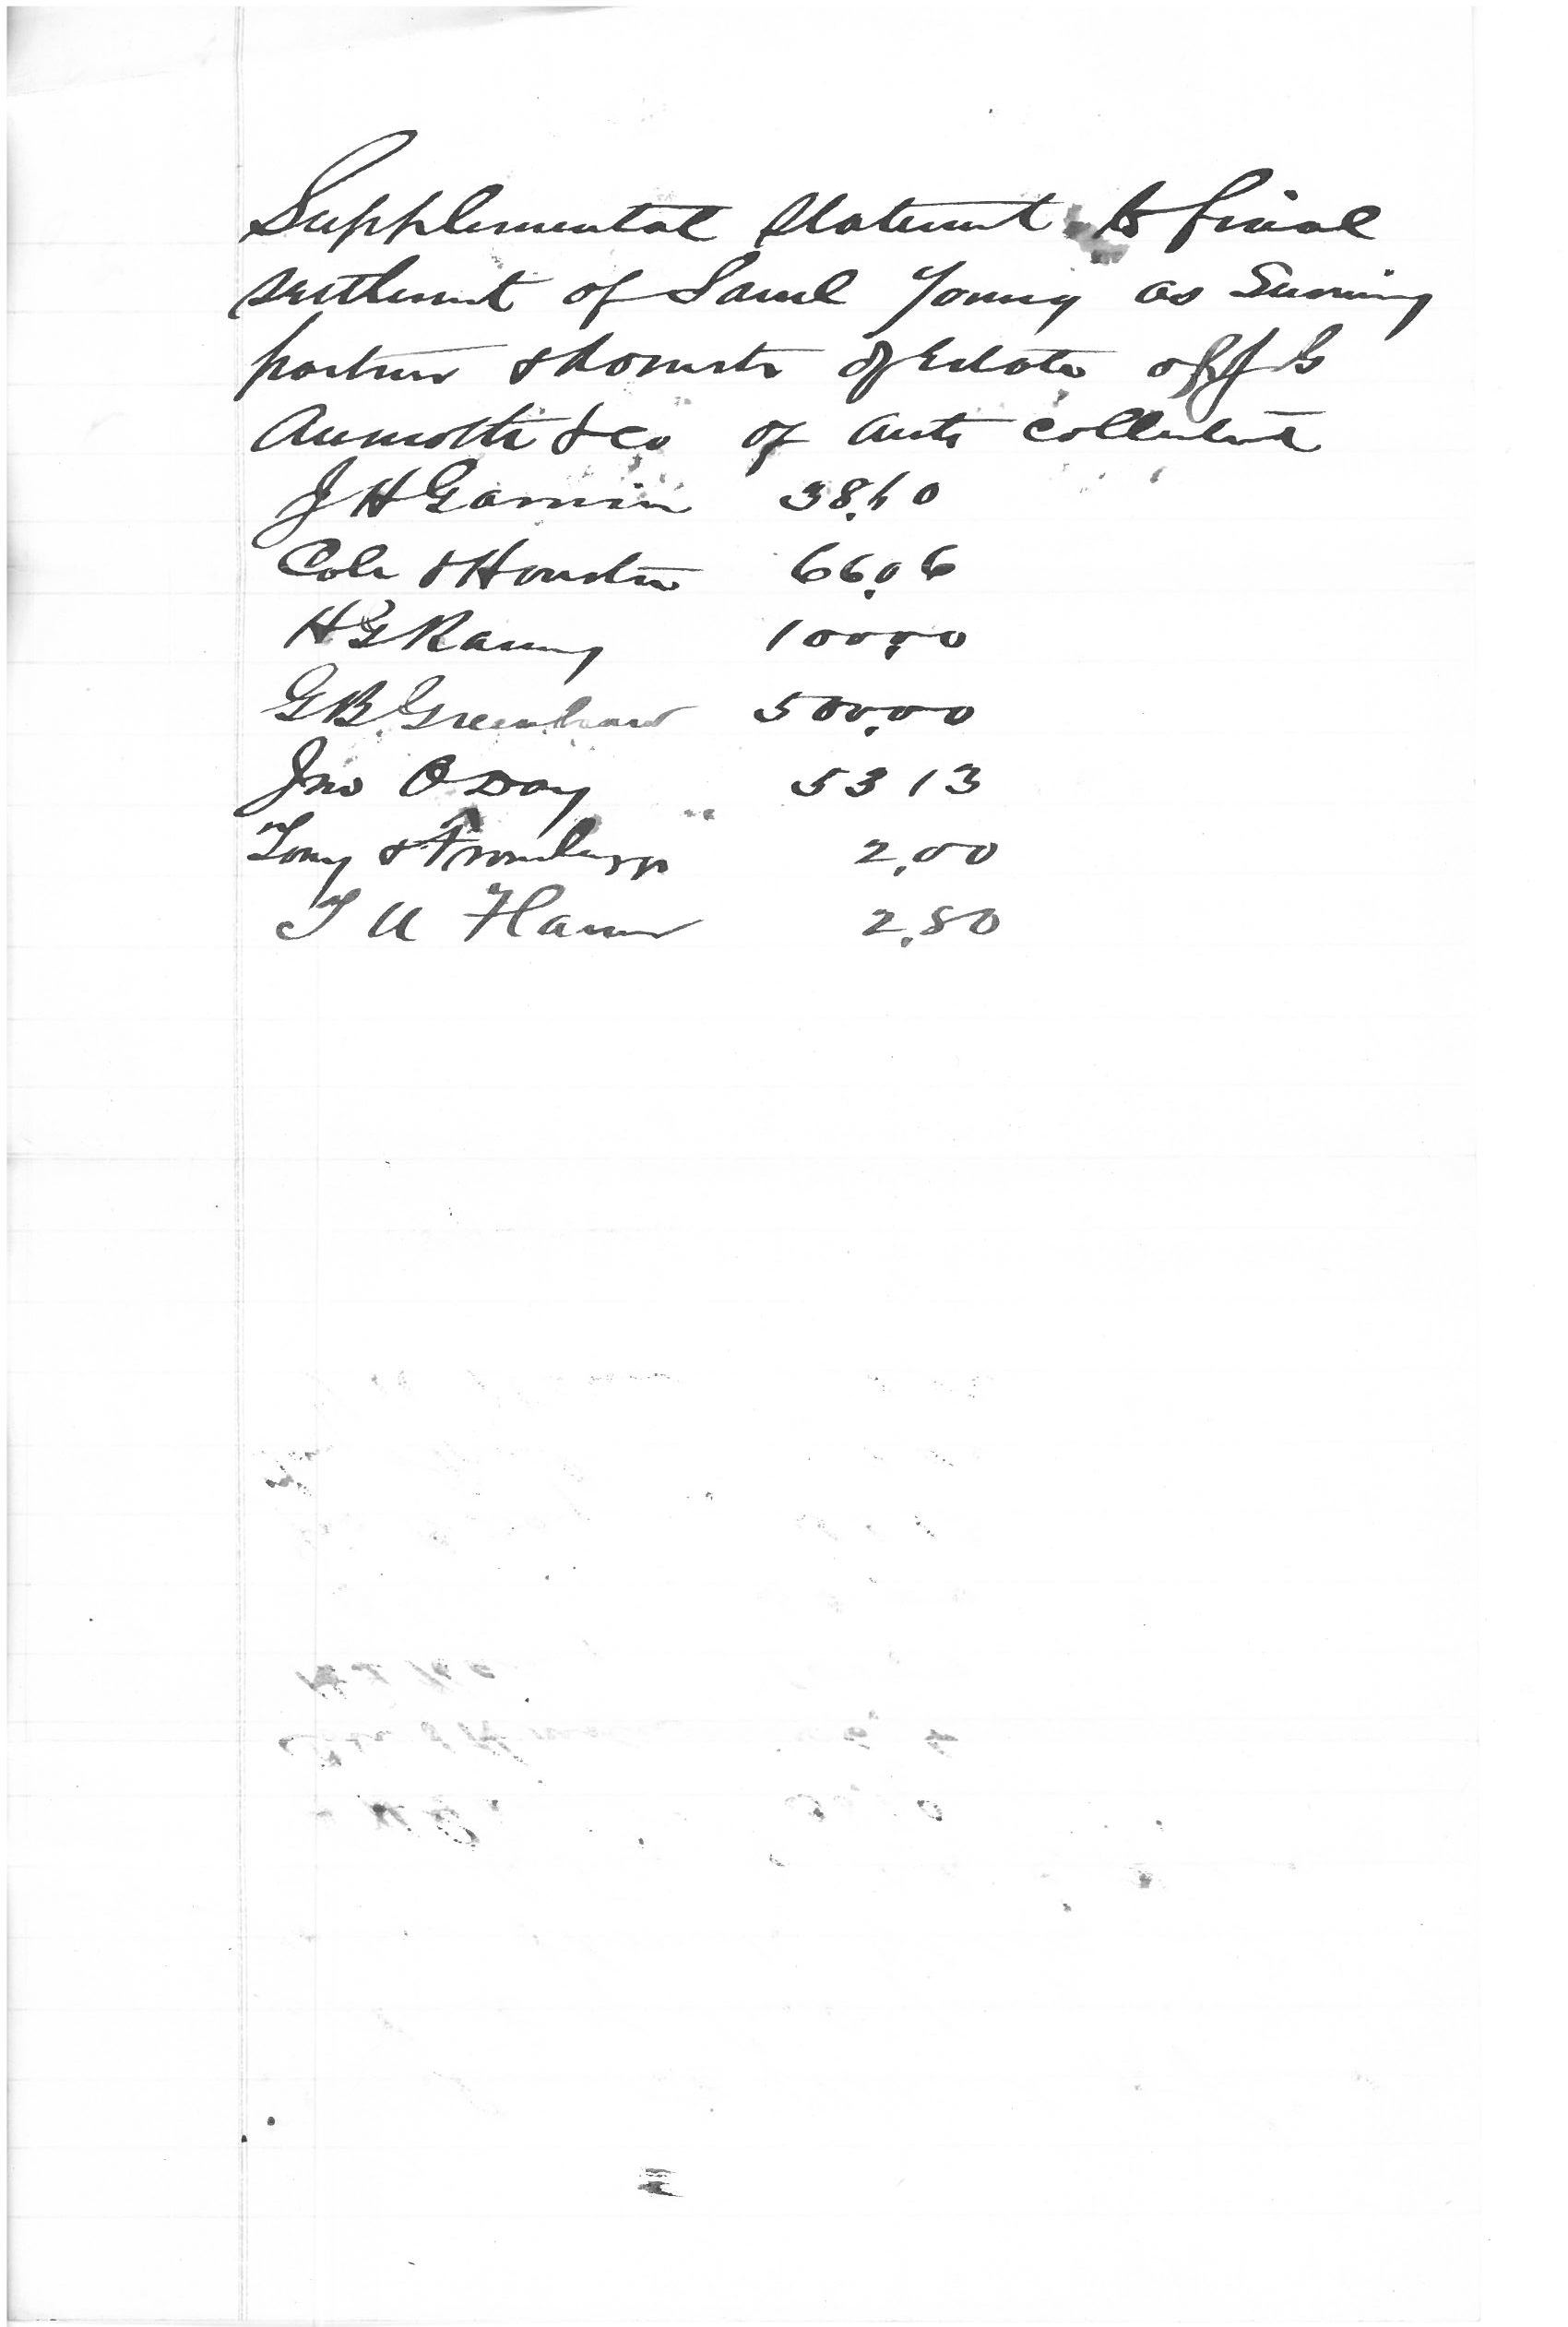 Supplemental Statement to final
settlement of Saml Young as Surviving
partner & Admstr of Estate of J G
& Co of accts collected
J H Garvin 38.60
Cole & Houston 66.06
H G Raney 100.00
G B Greenhaw 500.00
Jno O Day 53 13
Tony & 2.00
T U Ham 2.80